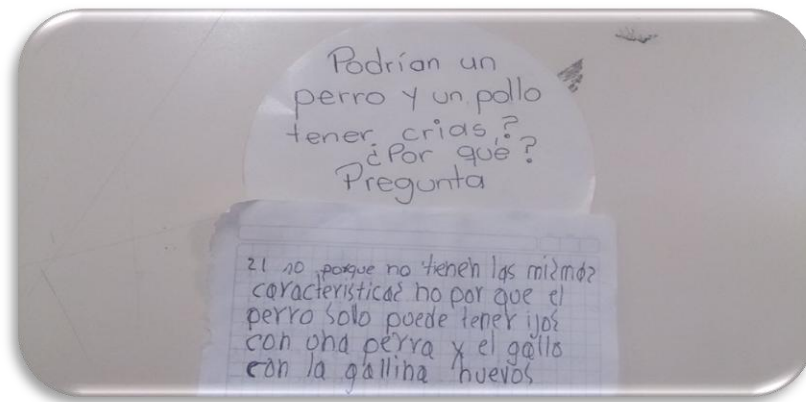 Podrían un
perro y un pollo
tener crias?
¿Por qué?
Pregunta
21 no porque no tienen las mi2mo2
caracteristica2 no por que el
perro solo puede tener ijos
con una perra y el gallo
con la gallina huevos